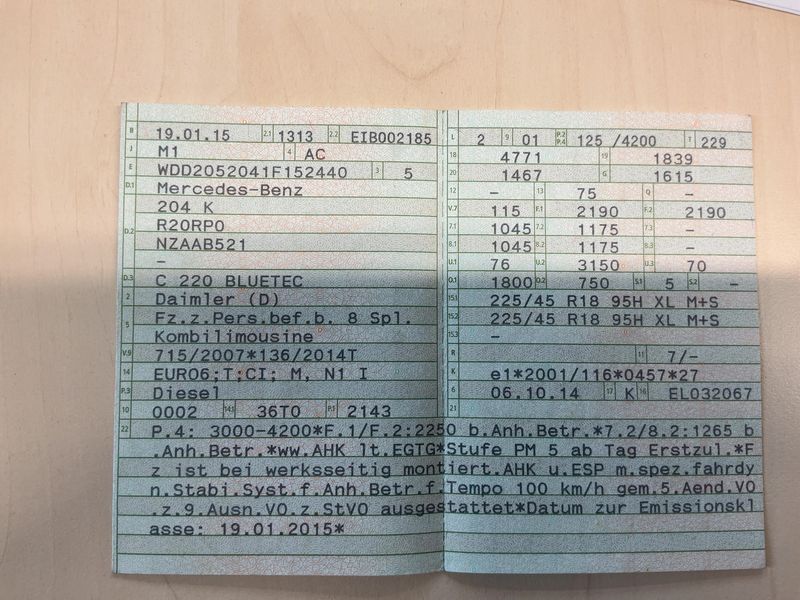 B 19.01.15 2.1 1313 2.2 EIB002185
J M1 4 AC
E WDD2052041F152440 3 5
D.1 Mercedes-Benz
204 K
D.2 R20RP0
NZAAB521
–
D.3 C 220 BLUETEC
2 Daimler (D)
5 Fz.z.Pers.bef.b. 8 Spl.
Kombilimousine
V.9 715/2007*136/2014T
14 EURO6;T;CI; M, N1 I
P.3 Diesel
10 0002 14.1 36T0 P.1 2143
L 2 9 01 P.2 P.4 125 /4200 T 229
18 4771 19 1839
20 1467 G 1615
12 – 13 75 Q –
V.7 115 F.1 2190 F.2 2190
7.1 1045 7.2 1175 7.3 –
8.1 1045 8.2 1175 8.3 –
U.1 76 U.2 3150 U.3 70
O.1 1800 O.2 750 S.1 5 S.2 –
15.1 225/45 R18 95H XL M+S
15.2 225/45 R18 95H XL M+S
15.3 –
R 11 7/–
K e1*2001/116*0457*27
6 06.10.14 17 K 16 EL032067
21
22 P.4: 3000-4200*F.1/F.2:2250 b.Anh.Betr.*7.2/8.2:1265 b
.Anh.Betr.*ww.AHK lt.EGTG*Stufe PM 5 ab Tag Erstzul.*F
z ist bei werksseitig montiert.AHK u.ESP m.spez.fahrdy
n.Stabi.Syst.f.Anh.Betr.f.Tempo 100 km/h gem.5.Aend.VO
.z.9.Ausn.VO.z.StVO ausgestattet*Datum zur Emissionskl
asse: 19.01.2015*